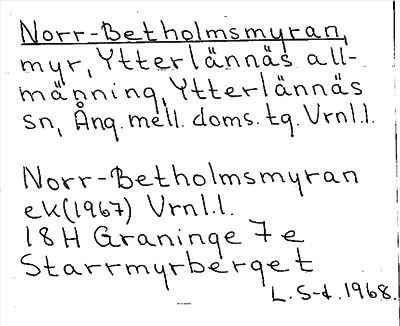 Norr-Betholmsmyran,
myr, Ytterlännäs all-
männing, Ytterlännäs
sn, Ång. mell. doms. tg. Vrnl.l.
Norr-Betholmsmyran
ek(1967) Vrnl.l.
18H Graninge 7e
Starrmyrberget
L. S-d. 1968.